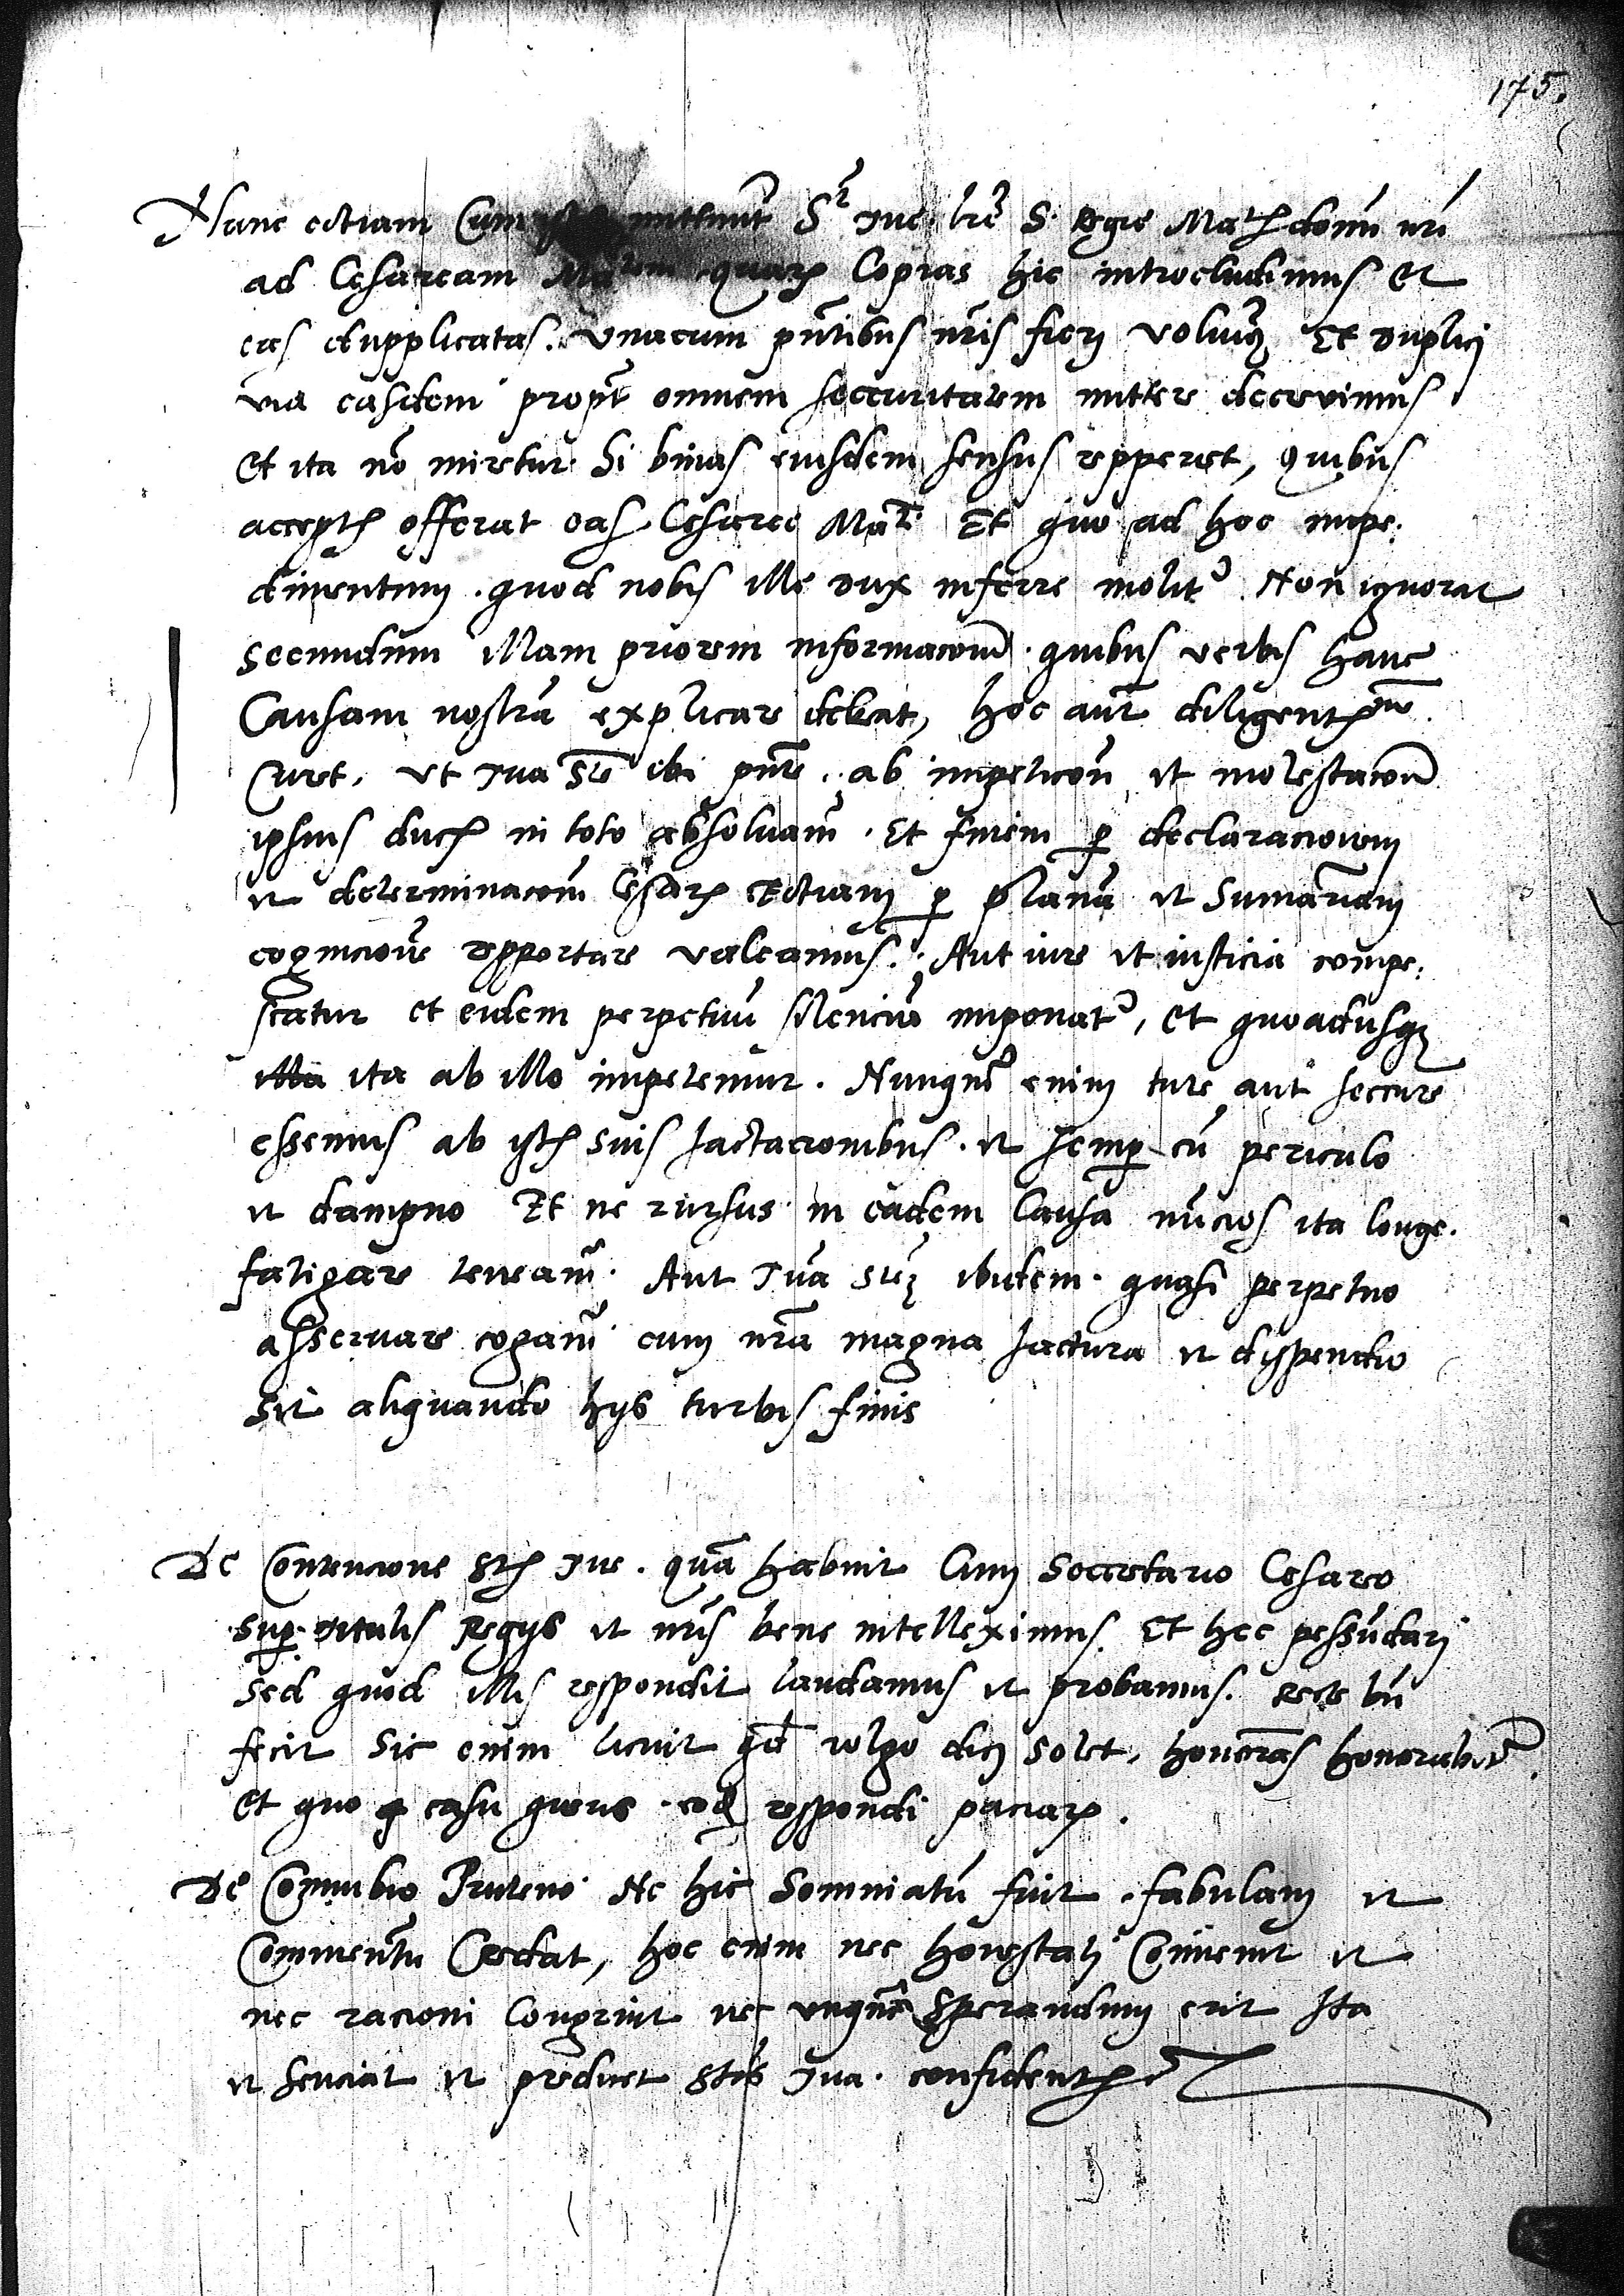 175.
Nunc ectiam Cum mittunt^r S^r Tue lre S. Regie Mat^is domi nri
ad Cesaream Ma^tem quar Copias hic introcludimus Et
eas dupplicatas. Vnacum pntibus nris fieri voluim9 Et duplici
via easdem propt omnem seccuritatem mittere decrevimus
Et ita no miretur Si binas eiusdem sensus repperet, quibus
accept9 offerat eas Cesaree Ma^ti Et quo ad hoc impe:
dimentum. quod nobis ille Dux inferre molit^r Non ignorat
Secundum illam priorem informacom. quibus verbis hanc
Causam nostra explicare debeat, hoc aut diligent^me
Curet. Vt Tua S^te ibi pnte. ab impeticon et molestacom
ipsius ducis in toto absoluam^r. Et finem p declaracionem
et determinacom Cesaris Ectiam p plana et Sumariam
cognicione repportare valeamus. Aut iure et iusticia compe:
scatur et eidem perpetuu silenciu imponat^r, Et quoadusq3
illa ita ab illo impetemur. Nunqua enim tute aut seccure
essemus ab istis suis Jactacionibus. et semp cu periculo
et dampno Et ne rursus in eadem Causa nuncios ita longe.
fatigare teneam^r. Aut Tua S^te ibidem. quasi perpetuo
asservare cogam^r cum nra magna Jactura et dispendio
Sit aliquando hys turbis finis
De Contencione S^tis Tue. qua habuit Cum Secretario Cesareo
Sup titulis Regys et nris bene intelleximus. Et hec pessudari
Sed quod illis respondit laudamus et probamus. Recte bn
fecit Sic enim licuit qd volgo dici solet, honoras honoraberis.
Et quo casu queris. eod responderi paciaris.
De Connubio Pruteno Ne hic Somniatu fuit. fabulam et
Commentu Credat, hoc enim nec honestati Conuenit et
nec racioni Congruit nec unqua Sperandum erit Ita
et senciat et predicet S^tas Tua. confident^r